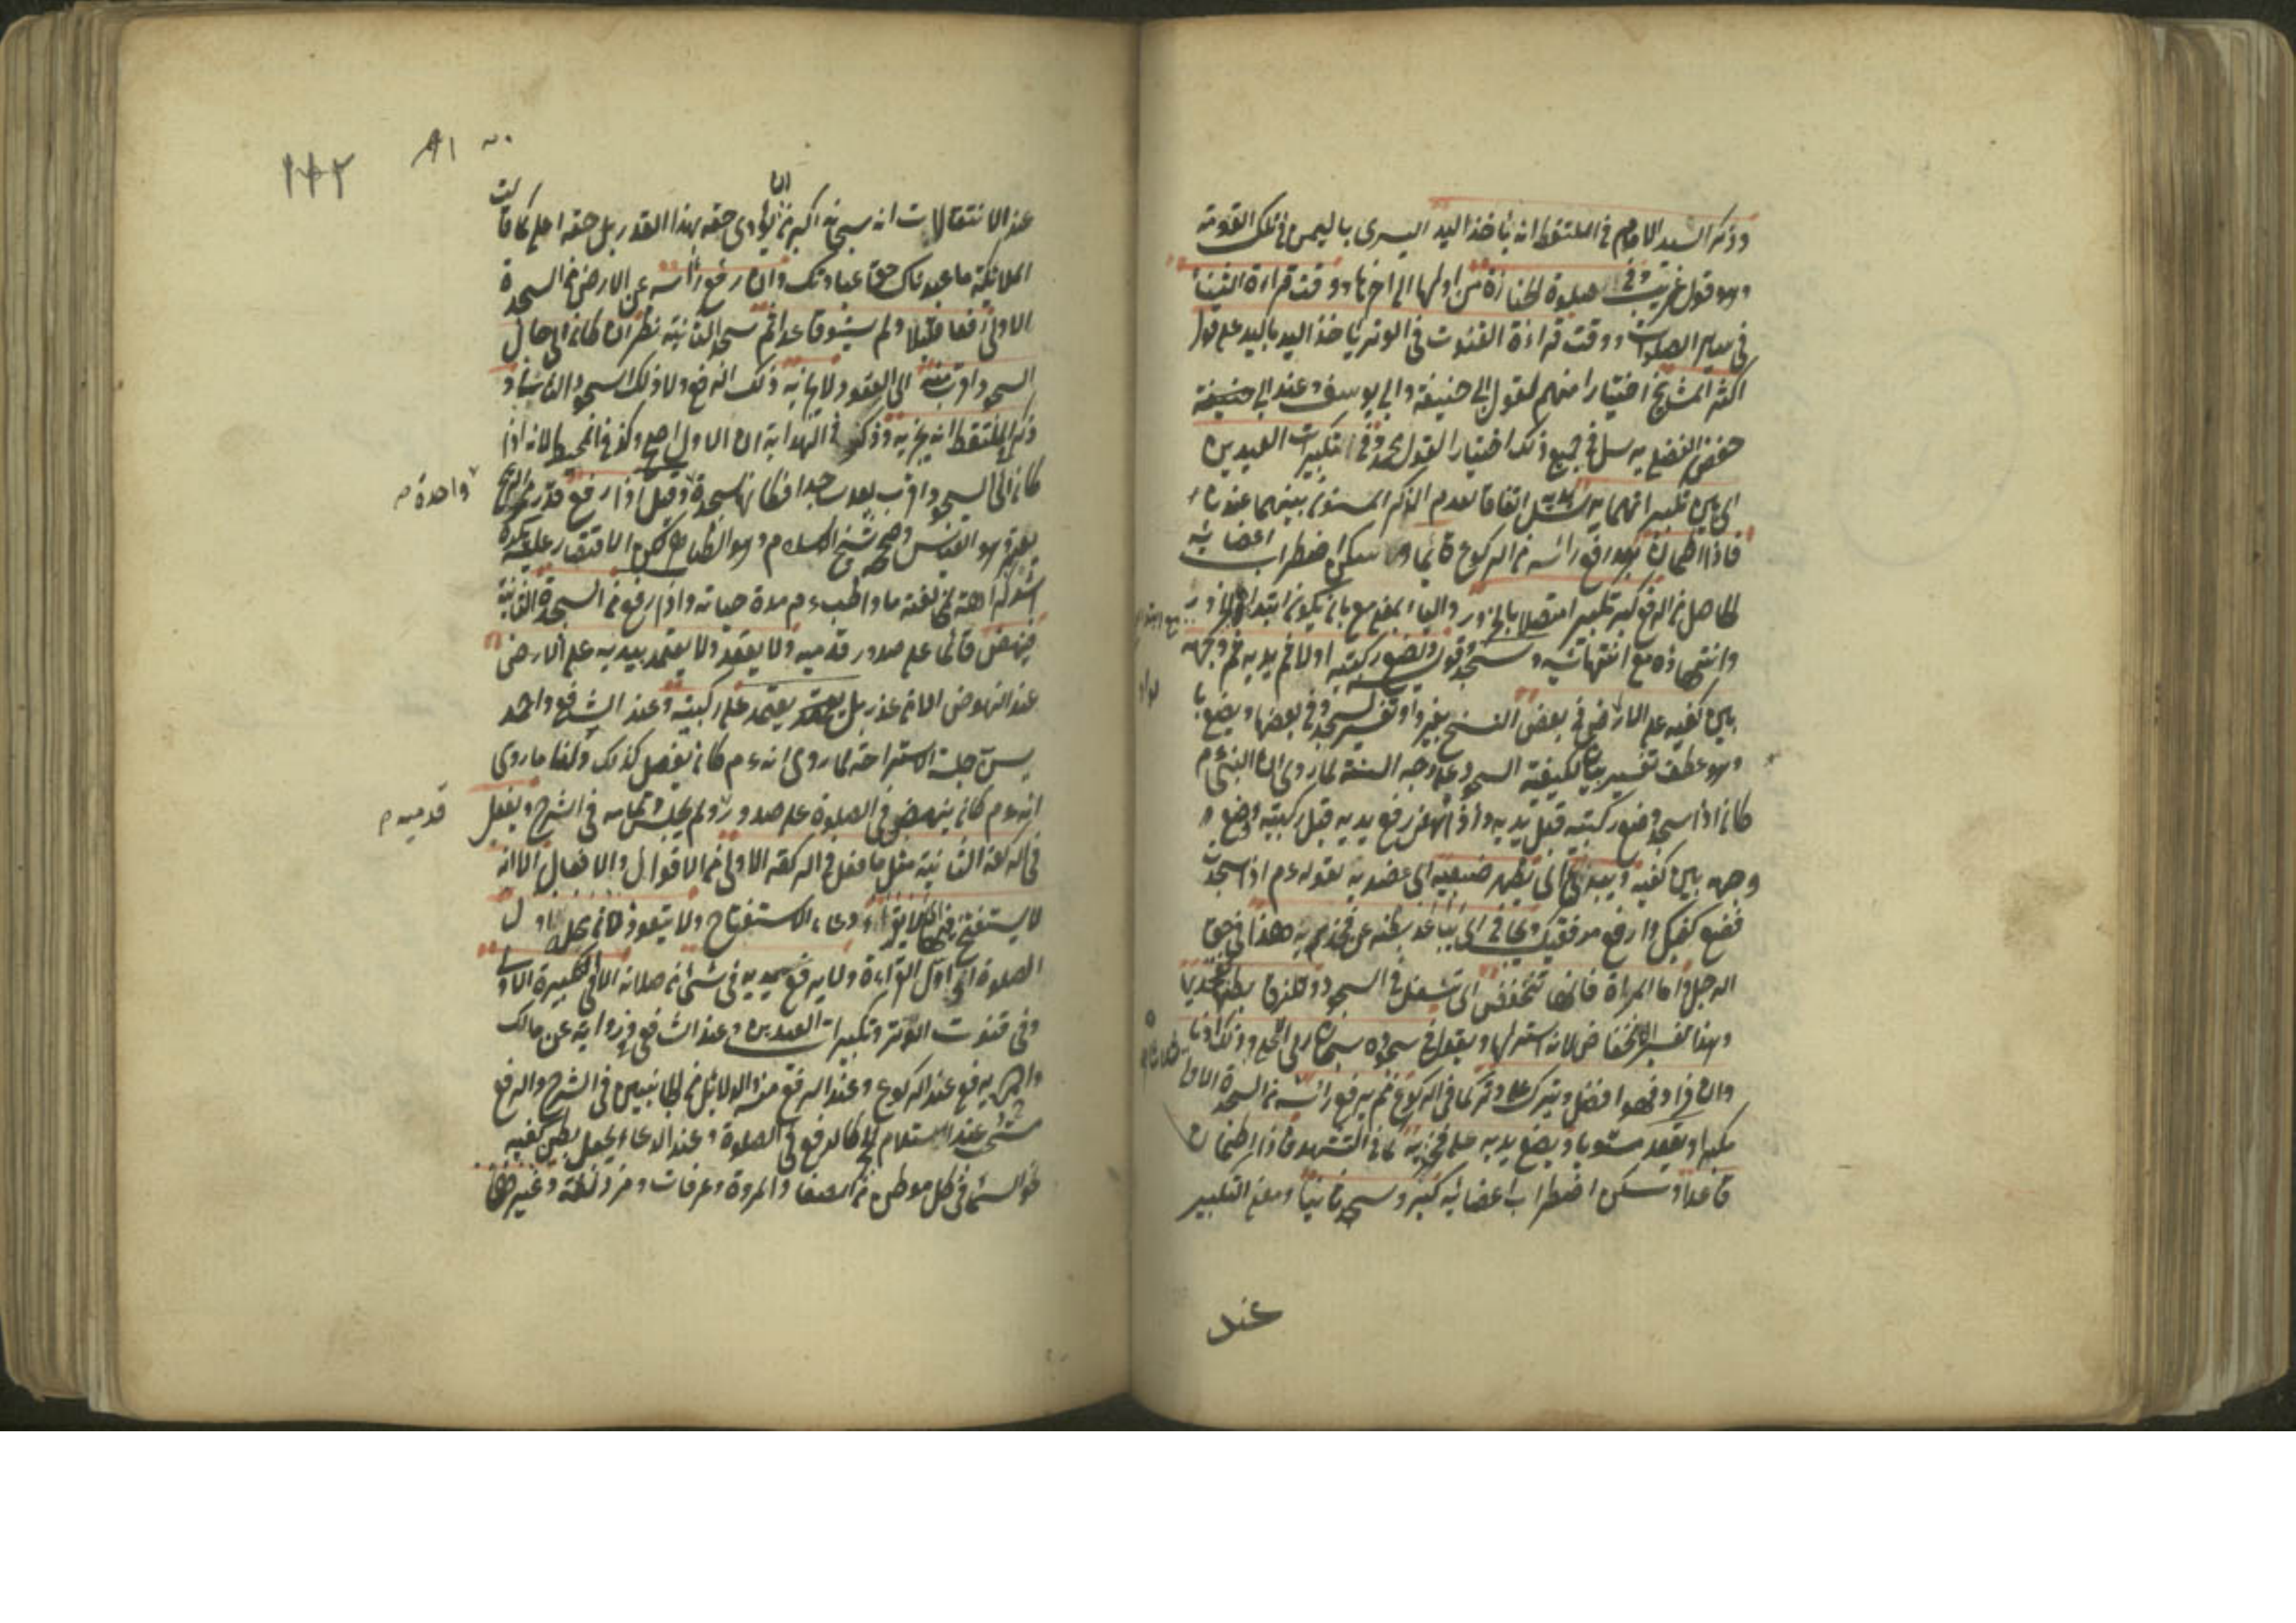 وذكر السيد الامام في الملتقط انه يأخذ اليد اليسرى باليمنى في تلك القومة
وهو قول غريب وفي صلوة الجنازة من اولها الى اخرها ووقت قراءة الثناء
في سائر الصلوات ووقت قراءة القنوت في الوتر يأخذ اليد باليد على قول
اكثر المشايخ اختيارا منهم لقول ابي حنيفة وابي يوسف وعند ابي حنيفة
حفص الفضلي يرسل في جميع ذلك اختيارا لقول محمد وفي تكبيرات العيدين
اي بين تكبيراتهما يرسل اتفاقا لعدم الذكر المسنون بينهما عندنا
فاذا اطمأن بعد رفع رأسه من الركوع قائما وسكن اضطراب اعضائه
الحاصل من الرفع كبر تكبيرا متصلا بالخرور والباء بمعنى مع بان يكون ابتداؤه
وانتهاؤه مع انتهائه وسجد وقوله ويضع ركبتيه اولا ثم يديه ثم وجهه
بين كفيه على الارض في بعض النسخ بغير واو تفسير لسجد وفي بعضها ويضع با
وهو عطف تفسير بيان لكيفية السجود على وجه السنة لما روي ان النبي ءم
كان اذا سجد وضع ركبتيه قبل يديه واذا نهض رفع يديه قبل ركبتيه ويضع
وجهه بين كفيه ويبدي اي يظهر ضبعيه اي عضديه لقوله ءم اذا سجدت
فضع كفيك وارفع مرفقيك ويجافي اي يباعد بطنه عن فخذيه هذا في حق
الرجل واما المرأة فانها تنخفض اي تتسفل في السجود وتلزق بطنها بفخذيها
وهذا تفسير الانخفاض لانه استر لها ويقول في سجوده سبحان ربي الاعلى وذلك ادناه
وان زاد فهو افضل ويترك على وتر كما في الركوع ثم يرفع رأسه من السجدة الاولى
مكبرا ويقعد مستويا ويضع يديه على فخذيه كما في التشهد فاذا اطمأن
قاعدا وسكن اضطراب اعضائه كبر وسجد ثانيا ومعنى التكبير
عند
٨١
١٤٢
عند الانتقالات انه سبحانه اكبر من ان يؤدى حقه بهذا القدر بل حقه اعلى كما قالت
الملائكة ما عبدناك حق عبادتك وان رفع رأسه عن الارض في السجدة
الاولى رفعا قليلا ولم يستو قاعدا ثم سجد الثانية نظر ان كان الى حال
السجود اقرب منه الى القعود لا يجزيه ذلك الرفع ولا ذلك السجود الثاني و
ذكر في الملتقط انه يجزيه وذكر في الهداية ان الاول اصح وكذا في المحيط لانه اذا
كان الى السجود اقرب يعد ساجدا فكانها سجدة وقيل اذا رفع قدر
واحدة م
وهو القياس وصححه شيخ الاسلام وهو الظاهر لكن الاقتصار عليه يكره
اشد كراهة لمخالفته ما واظب ءم مدة حياته واذا رفع من السجدة الثانية
ينهض قائما على صدور قدميه ولا يقعد ولا يعتمد بيديه على الارض
عند النهوض الا من عذر بل يعتمد على ركبتيه وعند الشافعي واحمد
يسن جلسة الاستراحة لما روي انه ءم كان يفعل كذلك ولنا ما روي
انه ءم كان ينهض في الصلوة على صدور ولم يجلس تمامه في الشرح ويفعل
قدميه م
في الركعة الثانية مثل ما فعل في الركعة الاولى من الاقوال والافعال الا انه
لا يستفتح فيها دعاء الاستفتاح ولا يتعوذ لان محله اول
الصلوة او اول القراءة ولا يرفع يديه في شيء من صلاته الا في التكبيرة الاولى
وفي قنوت الوتر وتكبيرات العيدين وعند الشافعي ورواية عن مالك
واحمد يرفع عند الركوع وعند الرفع منه والدلائل من الجانبين في الشرح والرفع
عند استلام الحجر كالرفع في الصلوة وعند الدعاء يجعل بطن كفيه
نحو السماء في كل موطن من الصفا والمروة وعرفات ومزدلفة وغيرها